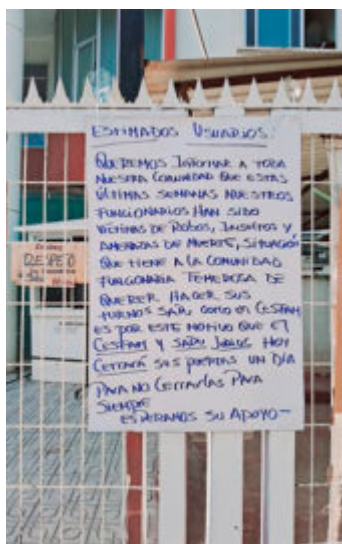 ESTIMADOS USUARIOS:
QUEREMOS INFORMAR A TODA
NUESTRA COMUNIDAD QUE ESTAS
ÚLTIMAS SEMANAS NUESTROS
FUNCIONARIOS HAN SIDO
VÍCTIMAS DE ROBOS, INSULTOS Y
AMENAZAS DE MUERTE, SITUACIÓN
QUE TIENE A LA COMUNIDAD
FUNCIONARIA TEMEROSA DE
QUERER HACER SUS
TURNOS SAPU COMO EN CESFAM
ES POR ESTE MOTIVO QUE EL
CESFAM Y SAPU HOY
CERRARÁ SUS PUERTAS UN DÍA
PARA NO CERRARLAS PARA
SIEMPRE
ESPERAMOS SU APOYO-
RESPETO